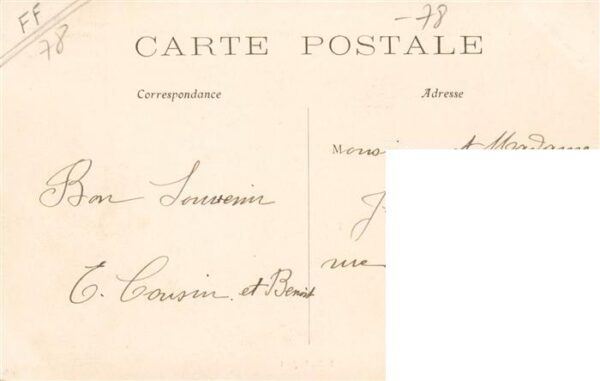 FF
78
-78
CARTE POSTALE
Correspondance
Adresse
Bon Souvenir
E. Cousin et Benoit
et Madame
rue